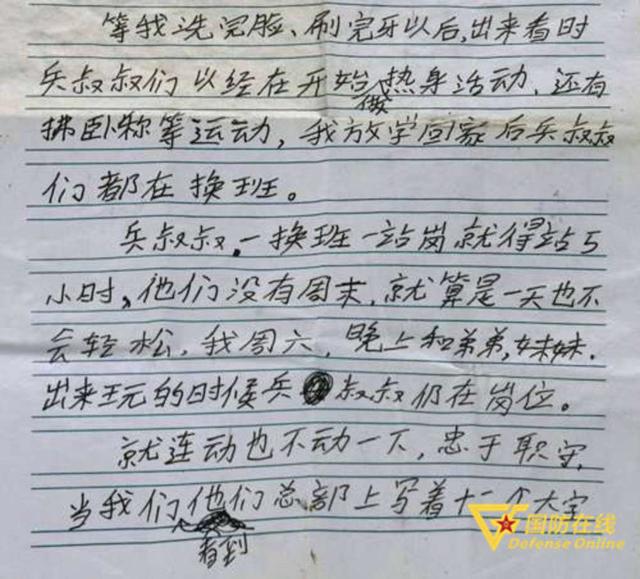 等我洗完脸、刷完牙以后,出来看时
兵叔叔们以经在开始做热身活动、还有
拂卧称等运动,我放学回家后兵叔叔
们都在换班。
兵叔叔.一换班一站岗就得站5
小时,他们没有周末,就算是一天也不
会轻松,我周六,晚上和弟弟,妹妹.
出来玩的时候兵叔叔仍在岗位。
就连动也不动一下,忠于职守,
当我们看到他们总部上写着十二个大字
国防在线
Defense Online